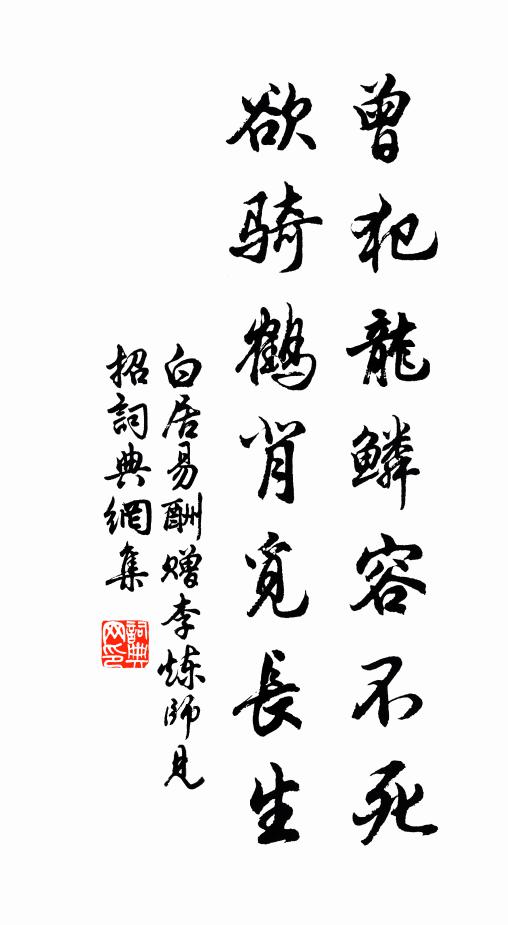 曾犯龍鱗容不死
欲骑鶴背覓長生
白居易酬赠李炼師見
招詞典網集
詞典网印